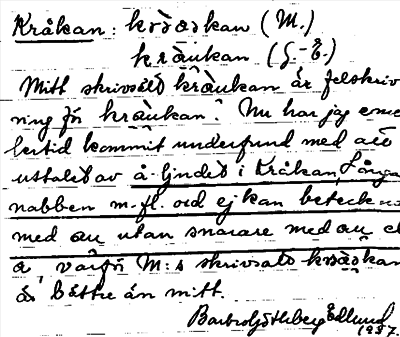 Kråkan: kròakan (M.)
kràukan (G-E.)
Mitt skrivsätt kràukan är felskriv
ning för kràukan. Nu har jag emel
lertid kommit underfund med att
uttalet av å-ljudet i Kråkan, Långa
nabben m.fl. ord ej kan beteckn
med au utan snarare med au el
a, varför M:s skrivsätt kròakan
är bättre än mitt.
Barbro Göthberg Edlund
1937.